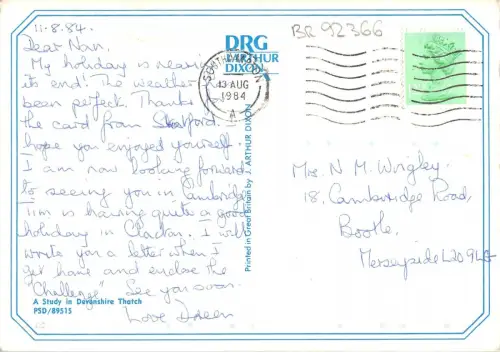 11.8.84.
Dear Nan,
My holiday is nearing
its end! The weather has
been perfect. Thanks for
the card from
hope you enjoyed yourself.
I am now looking forward
to seeing you in Cambridge.
Tim is having quite a good
holiday in Clacton. I will
write you a letter when I
get home and enclose the
"Challenge". See you soon.
Love
A Study in Devonshire Thatch
PSD/89515
DRG
J. ARTHUR
DIXON
Printed in Great Britain by J. ARTHUR DIXON
13 AUG
1984
A
BR 92366
Mrs N M Wrigley,
18, Cambridge Road,
Bootle,
Merseyside L20 9LE